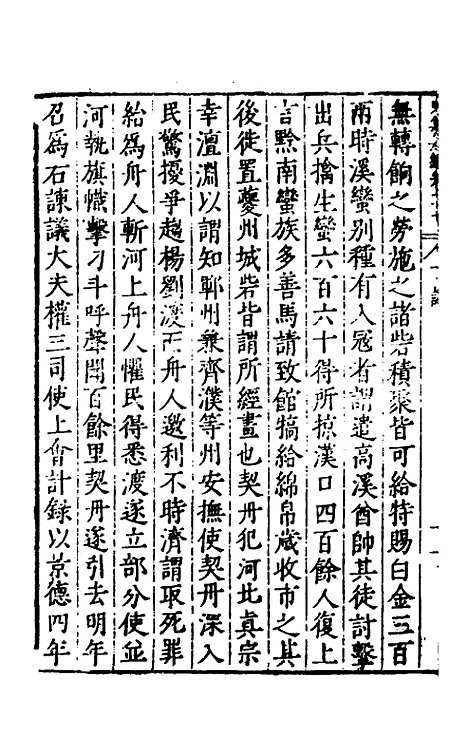 無轉餉之勞施之諸砦積聚皆可給特賜白金三百
兩時溪蠻別種有入冦者謂遣高溪酋帥其徒討擊
出兵擒生蠻六百六十得所掠漢口四百餘人復上
言黔南蠻族多善馬請致館犒給綿帛歲收市之其
後徙置夔州城砦皆謂所經畫也契丹犯河北真宗
幸澶淵以謂知鄆州兼齊濮等州安撫使契丹深入
民驚擾爭趨楊劉渡而舟人邀利不時濟謂取死罪
紿爲舟人斬河上舟人懼民得悉渡遂立部分使並
河執旗幟擊刁斗呼聲聞百餘里契丹遂引去明年
召爲右諫議大夫權三司使上會計錄以景德四年